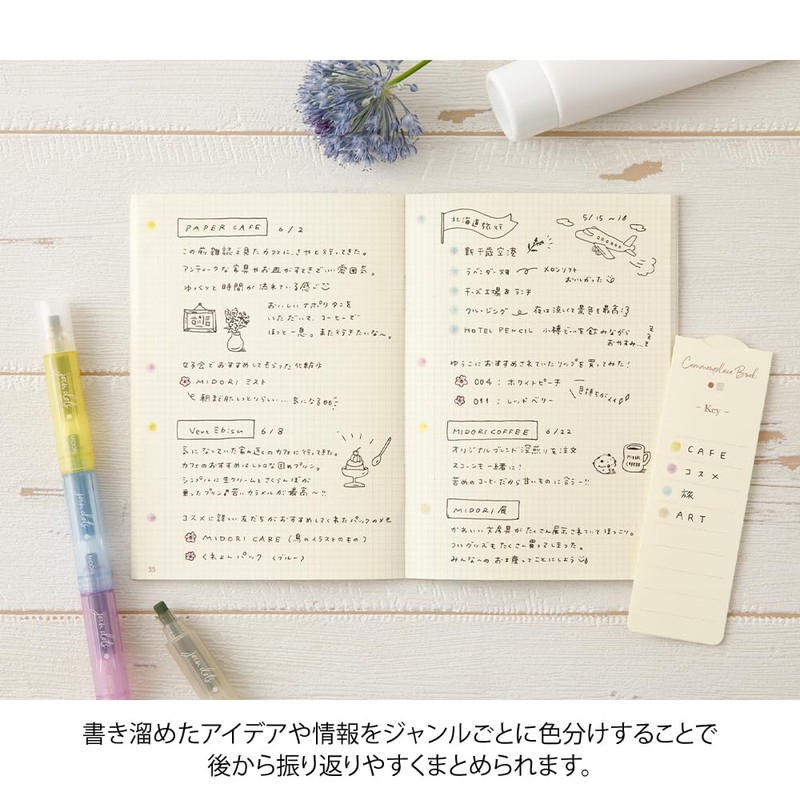 PAPER CAFE 6/2
この前雑誌で見たカフェに、さやと行ってきた。
アンティークな家具やお皿がすてきでいい雰囲気。
ゆっくりと時間が流れている感じ
おいしいナポリタンを
いただいて、コーヒーで
ほっと一息。また行きたいな〜。
女子会でおすすめしてもらった化粧水
MIDORI ミスト
Vert Ebisu 6/8
気になっていた家の近くのカフェに行ってきた。
カフェのおすすめはレトロな固めプリン。
シンプルに生クリームとさくらんぼが
乗ったプリン♪苦いカラメルが最高〜!!
コスメに詳しい友だちがおすすめしてくれたパックのメモ
MIDORI CARE (鳥のイラストのもの)
くれよんパック (ブルー)
33
北海道旅行 5/15〜18
新千歳空港
ラベンダー畑 メロンソフト
おいしかった
チーズ工場&ランチ
クルージング 夜は涼しくて景色も最高!
HOTEL PENCIL 小樽ビールを飲みながら
おやすみ...
ゆうこにおすすめされていたリップを買ってみた!
004 : ホワイトピーチ
091 : レッドベリー
色持ちがイイ
MIDORI COFFEE 6/22
オリジナルブレンド深煎りを注文
スコーンも一緒に!
苦めのコーヒーだから甘いものに合う〜!!
MIDORI 展
かわいい文房具がたくさん展示されていてほっこり。
ついグッズもたくさん買ってしまった。
みんなへのお土産ってことにしよう
Commonplace Book
- Key -
CAFE
コスメ
旅
ART
join dots
join dots
join dots
join dots
書き溜めたアイデアや情報をジャンルごとに色分けすることで
後から振り返りやすくまとめられます。